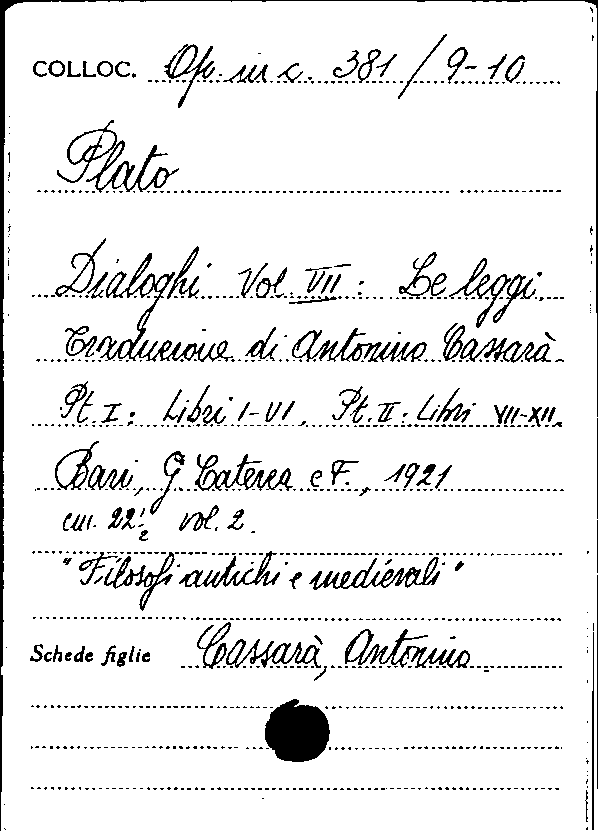 COLLOC. Op. in c. 381 / 9-10
Plato
Dialoghi Vol. VII: Le leggi.
Traduzione di Antonino Cassarà.
Pt. I: Libri I-VI. Pt. II: Libri VII-XII.
Bari, G Laterza e F., 1921
cm. 22 1/2 vol. 2.
"Filosofi antichi e medievali"
Schede figlie Cassarà, Antonino